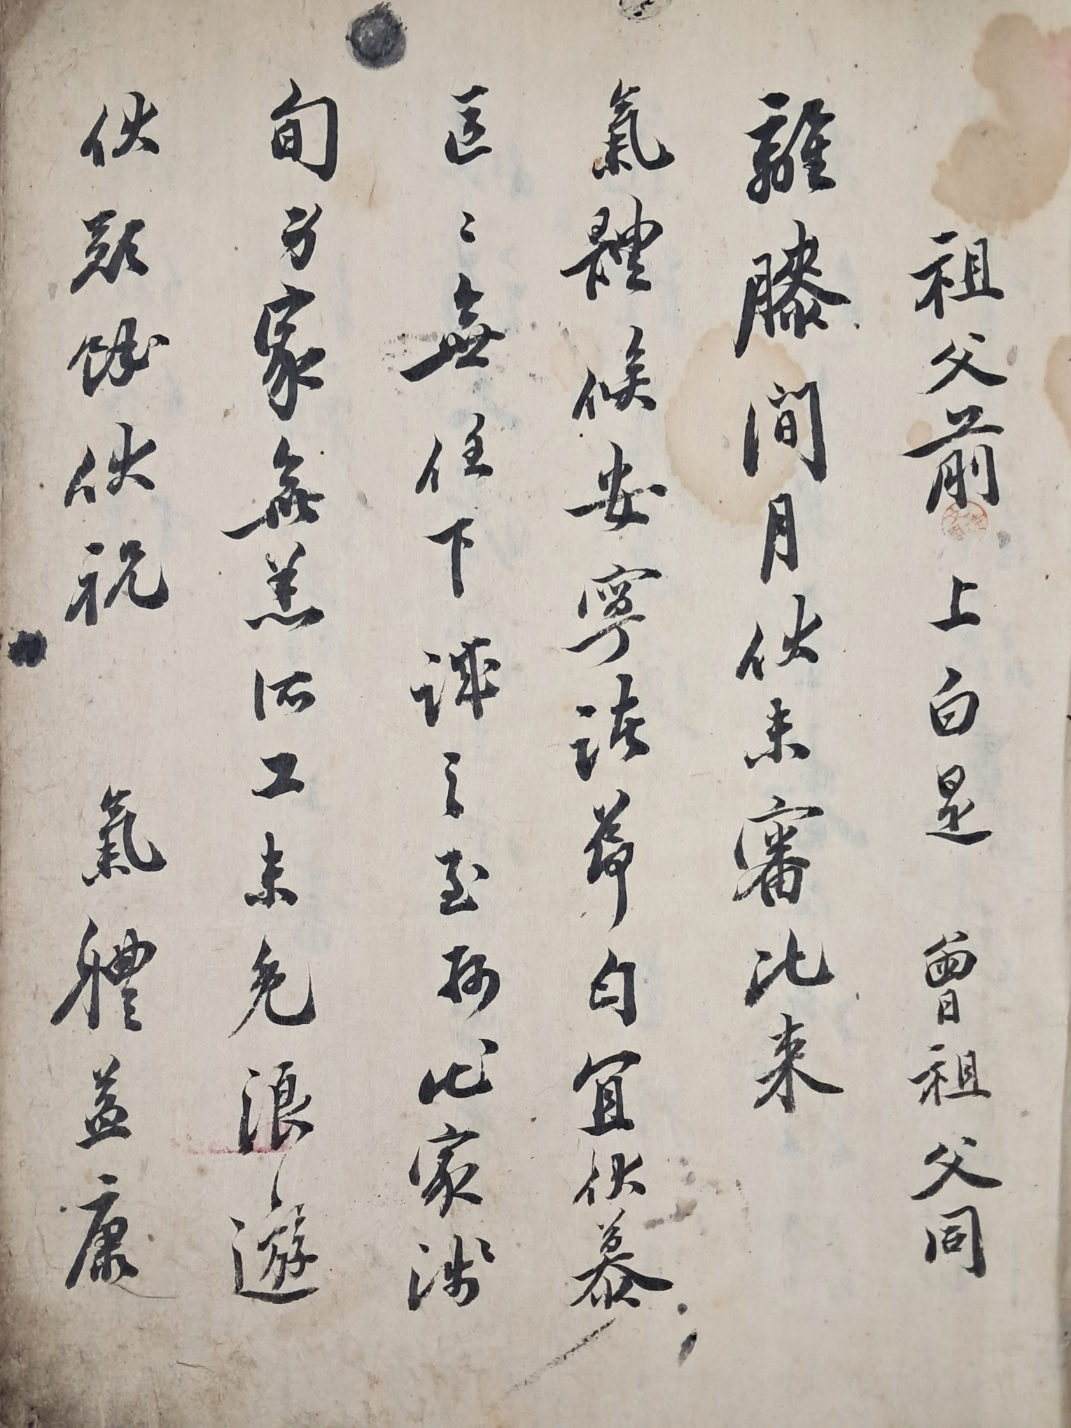 祖父前 上白是 曾祖父同
離膝間月伏未審比來
氣體候安寧諸節勻宜伏慕
區〻無任下誠之至孫比家涉
旬方家無恙所工未免浪遊
伏歎餘伏祝 氣體益康